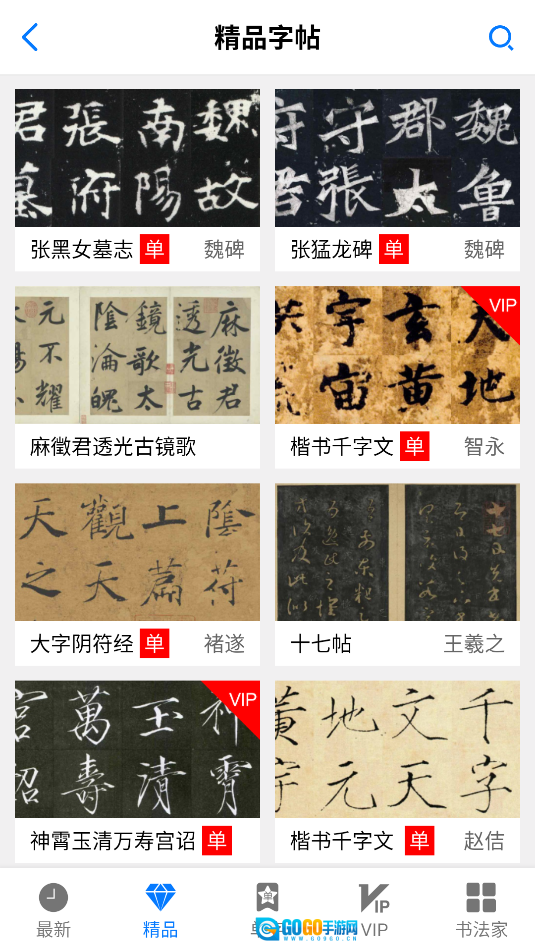 精品字帖
君 張 南 魏
墓 府 陽 故
守 郡 魏
君 張 太 魯
张黑女墓志 单 魏碑
张猛龙碑 单 魏碑
元 陰 鏡 透 麻
不 淪 歌 光 徵
耀 魄 太 古 君
VIP
宇 玄 天
宙 黄 地
麻徵君透光古镜歌
楷书千字文 单 智永
天 觀 上 陰
之 天 篇 符
十七帖
大字阴符经 单 褚遂
十七帖 王羲之
VIP
宫 萬 玉 神
詔 壽 清 霄
黃 地 文 千
宇 元 天 字
神霄玉清万寿宫诏 单
楷书千字文 单 赵佶
最新
精品
VIP
VIP
书法家
GOGO手游网
WWW.GO9GO.CN